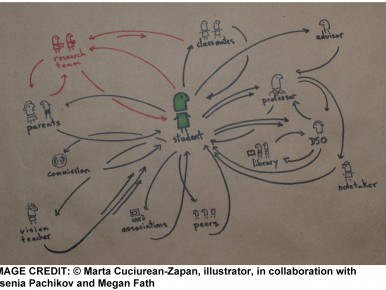 classmates
advisor
research
team
professor
parents
student
DSO
library
commission
notetaker
vision
teacher
associations
peers
MAGE CREDIT: © Marta Cuciurean-Zapan, illustrator, in collaboration with
senia Pachikov and Megan Fath